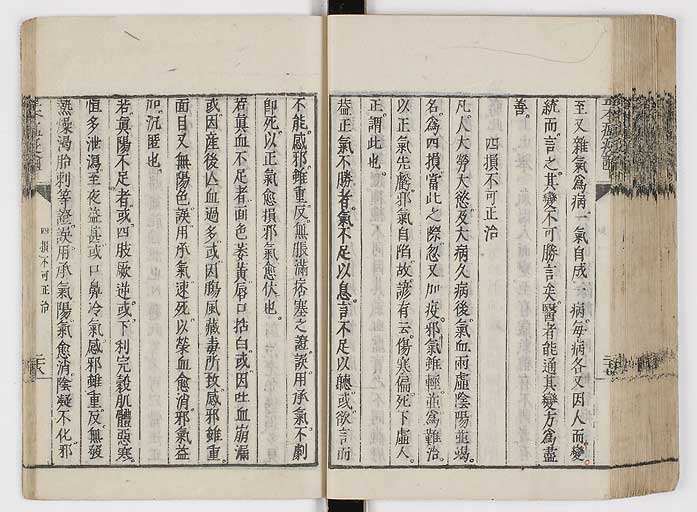 至又雜氣爲病一氣自成一病每病各又因人而變
統而言之其變不可勝言矣醫者能通其變方爲盡
善
四損不可正治
凡人大勞大慾及大病久病後氣血兩虛陰陽並竭
名爲四損當此之際忽又加疫邪氣雖輕並爲難治
以正氣先虧邪氣自陷故諺有云傷寒偏死下虛人
正謂此也
蓋正氣不勝者氣不足以息言不足以聽或欲言而
不能感邪雖重反無脹滿痞塞之證誤用承氣不劇
卽死以正氣愈損邪氣愈伏也
若眞血不足者面色萎黃唇口括白或因吐血崩漏
或因産後亾血過多或因腸風藏毒所致感邪雖重
面目又無陽色誤用承氣速死以榮血愈消邪氣益
加沉匿也
若眞陽不足者或四肢厥逆或下利完穀肌體惡寒
恒多泄瀉至夜益甚或口鼻冷氣感邪雖重反無發
熱燥渴胎刺等證誤用承氣陽氣愈消陰凝不化邪
四損不可正治